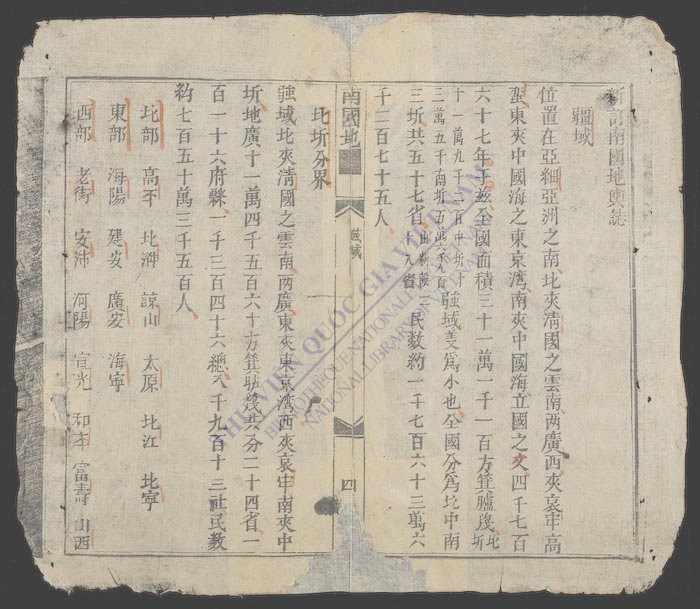 新訂南國地輿誌
疆域
位置在亞細亞洲之南北夾清國之雲南两廣西夾哀牢高
蛮東夾中國海之東京湾南夾中國海立國之文四千七百
六十七年于玆全國面積三十一萬一千一百方箕驢幾北圻
十一萬九千一百中圻十
三萬五千南圻五萬六千九百疆域美爲小也全國分爲北中南
三圻共五十七省
九省民数約一千七百六十三萬六
千三百七十五人
南國地
疆域
四
北圻分界
疆域北夾清國之雲南两廣東夾東京湾西夾哀牢南夾中
圻地廣十一萬四千五百六十方箕驢幾共分二十四省一
百一十六府縣一千三百四十六總八千九百十三社民数
約七百五十萬三千五百人
北部 高平 北𣴓 諒山 太原 北江 北寧
東部 海陽 建安 廣安 海寧
西部 老街 安沛 河陽 宣光 和平 富壽 山西
THƯ VIỆN QUỐC GIA VIỆT NAM
BIBLIOTHÈQUE NATIONALE DU VIETNAM
NATIONAL LIBRARY OF VIETNAM